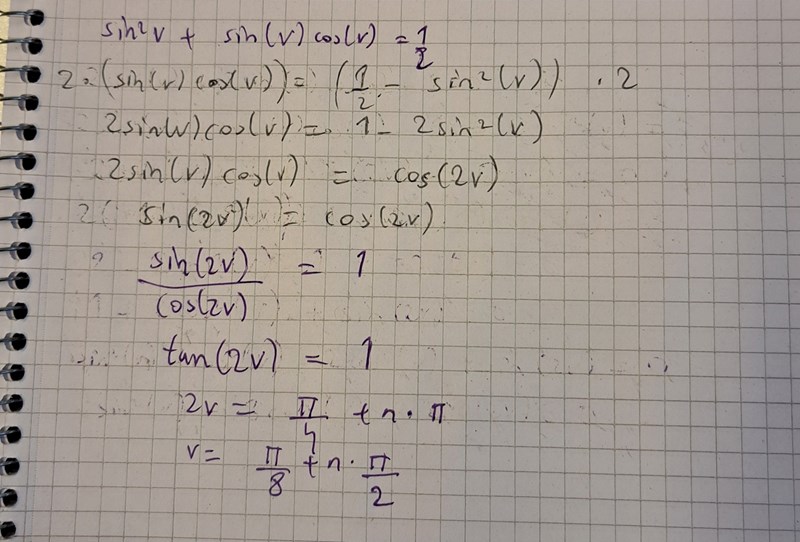 sin²v + sin(v) cos(v) = 1/2
2·(sin(v) cos(v)) = (1/2 - sin²(v)) · 2
2sin(v) cos(v) = 1 - 2sin²(v)
2sin(v) cos(v) = cos(2v)
sin(2v) = cos(2v)
sin(2v)/cos(2v) = 1
tan(2v) = 1
2v = π/4 + n · π
v = π/8 + n · π/2